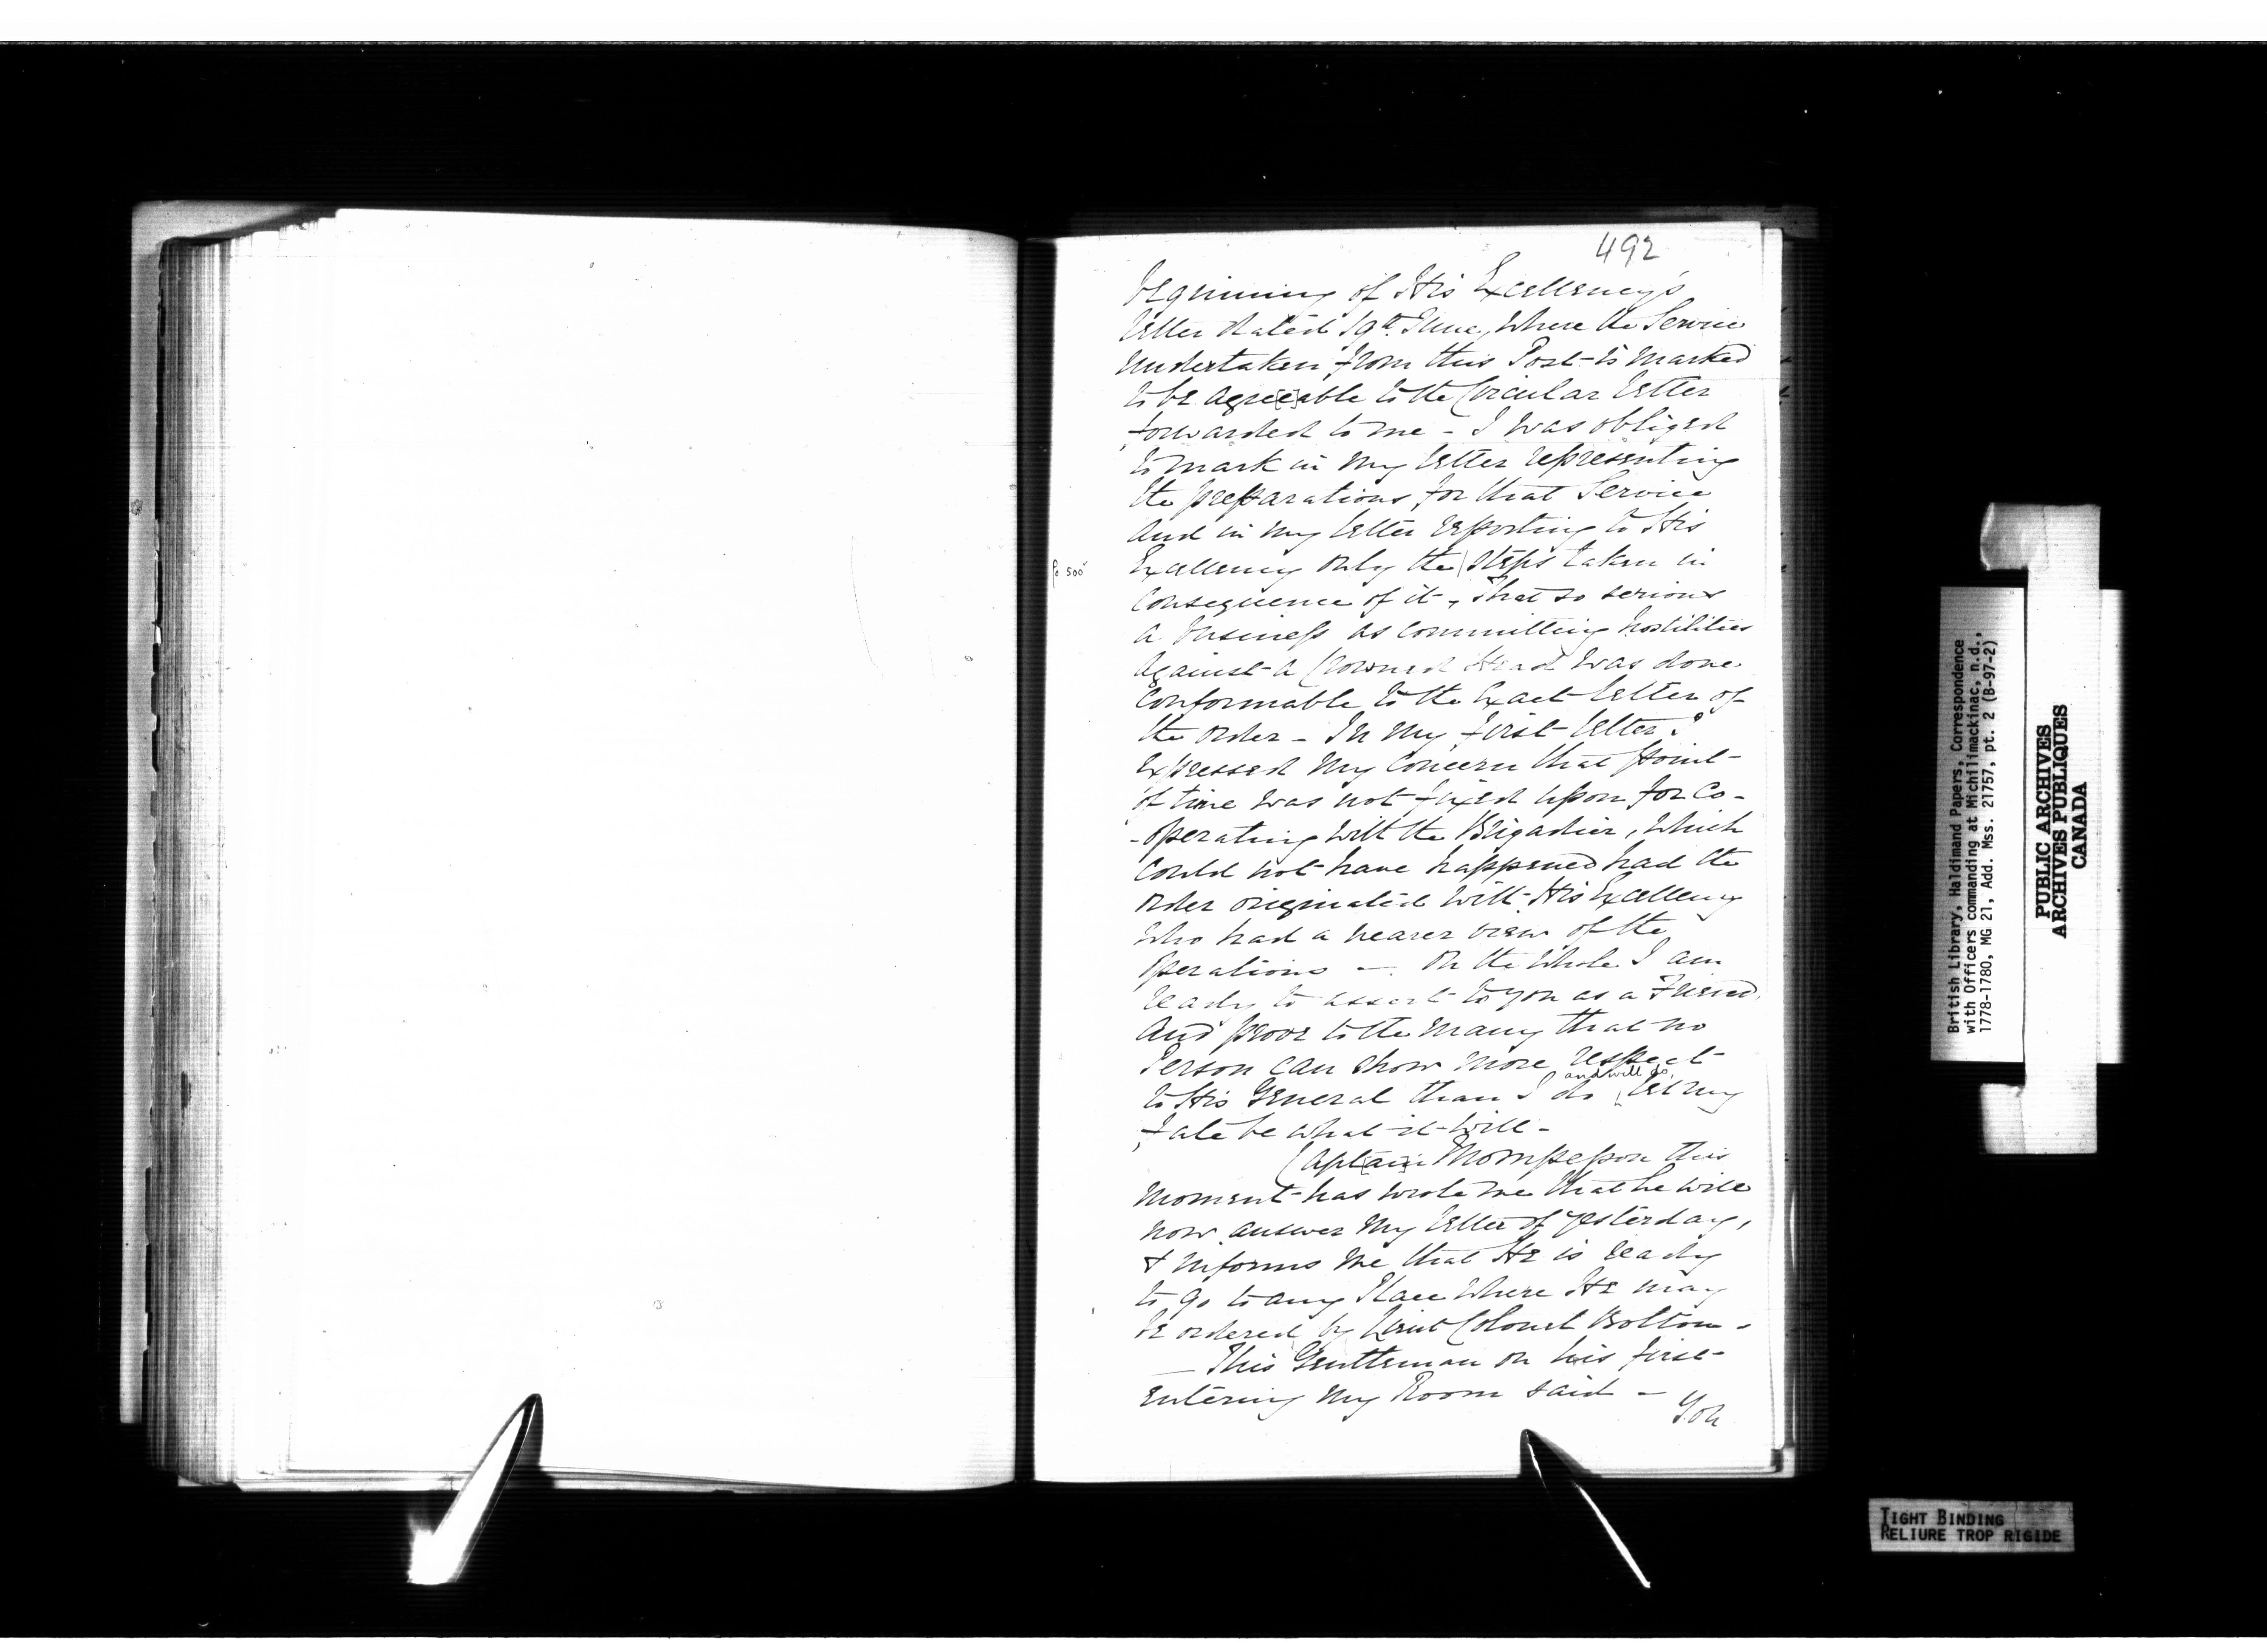 492
beginning of His Excellency's
letter dated 19th June, where the Service
undertaken from this Post is marked
to be agre[e]able to the Circular letter
forwarded to me - I was obliged
to mark in my letter representing
the preparations for that Service
and in my letter reporting to His
fo 500v
Excellency only the | steps taken in
consequence of it, that so serious
a business as committing hostilities
against a Crowned Head was done
conformable to the exact letter of
the order - In my first letter I
expressed my concern that point
of time was not fixed upon for co-
-operating with the Brigadier, which
could not have happened had the
order originated with His Excellency
who had a nearer view of the
operations - On the whole I am
ready to assert to you as a Friend,
and prove to the many that no
Person can show more respect
and will do,
to His General than I do let my
fate be what it will -
Capt[ai]n Mompesson this
moment has wrote me that he will
now answer my letter of yesterday,
& informs me that He is ready
to go to any Place where He may
be ordered by Lieut Colonel Bolton -
- This Gentleman on his first
entering my Room said -
You
British Library, Haldimand Papers, Correspondence
with Officers commanding at Michilimackinac, n.d.,
1778-1780, MG 21, Add. Mss. 21757, pt. 2 (B-97-2)
PUBLIC ARCHIVES
ARCHIVES PUBLIQUES
CANADA
TIGHT BINDING
RELIURE TROP RIGIDE